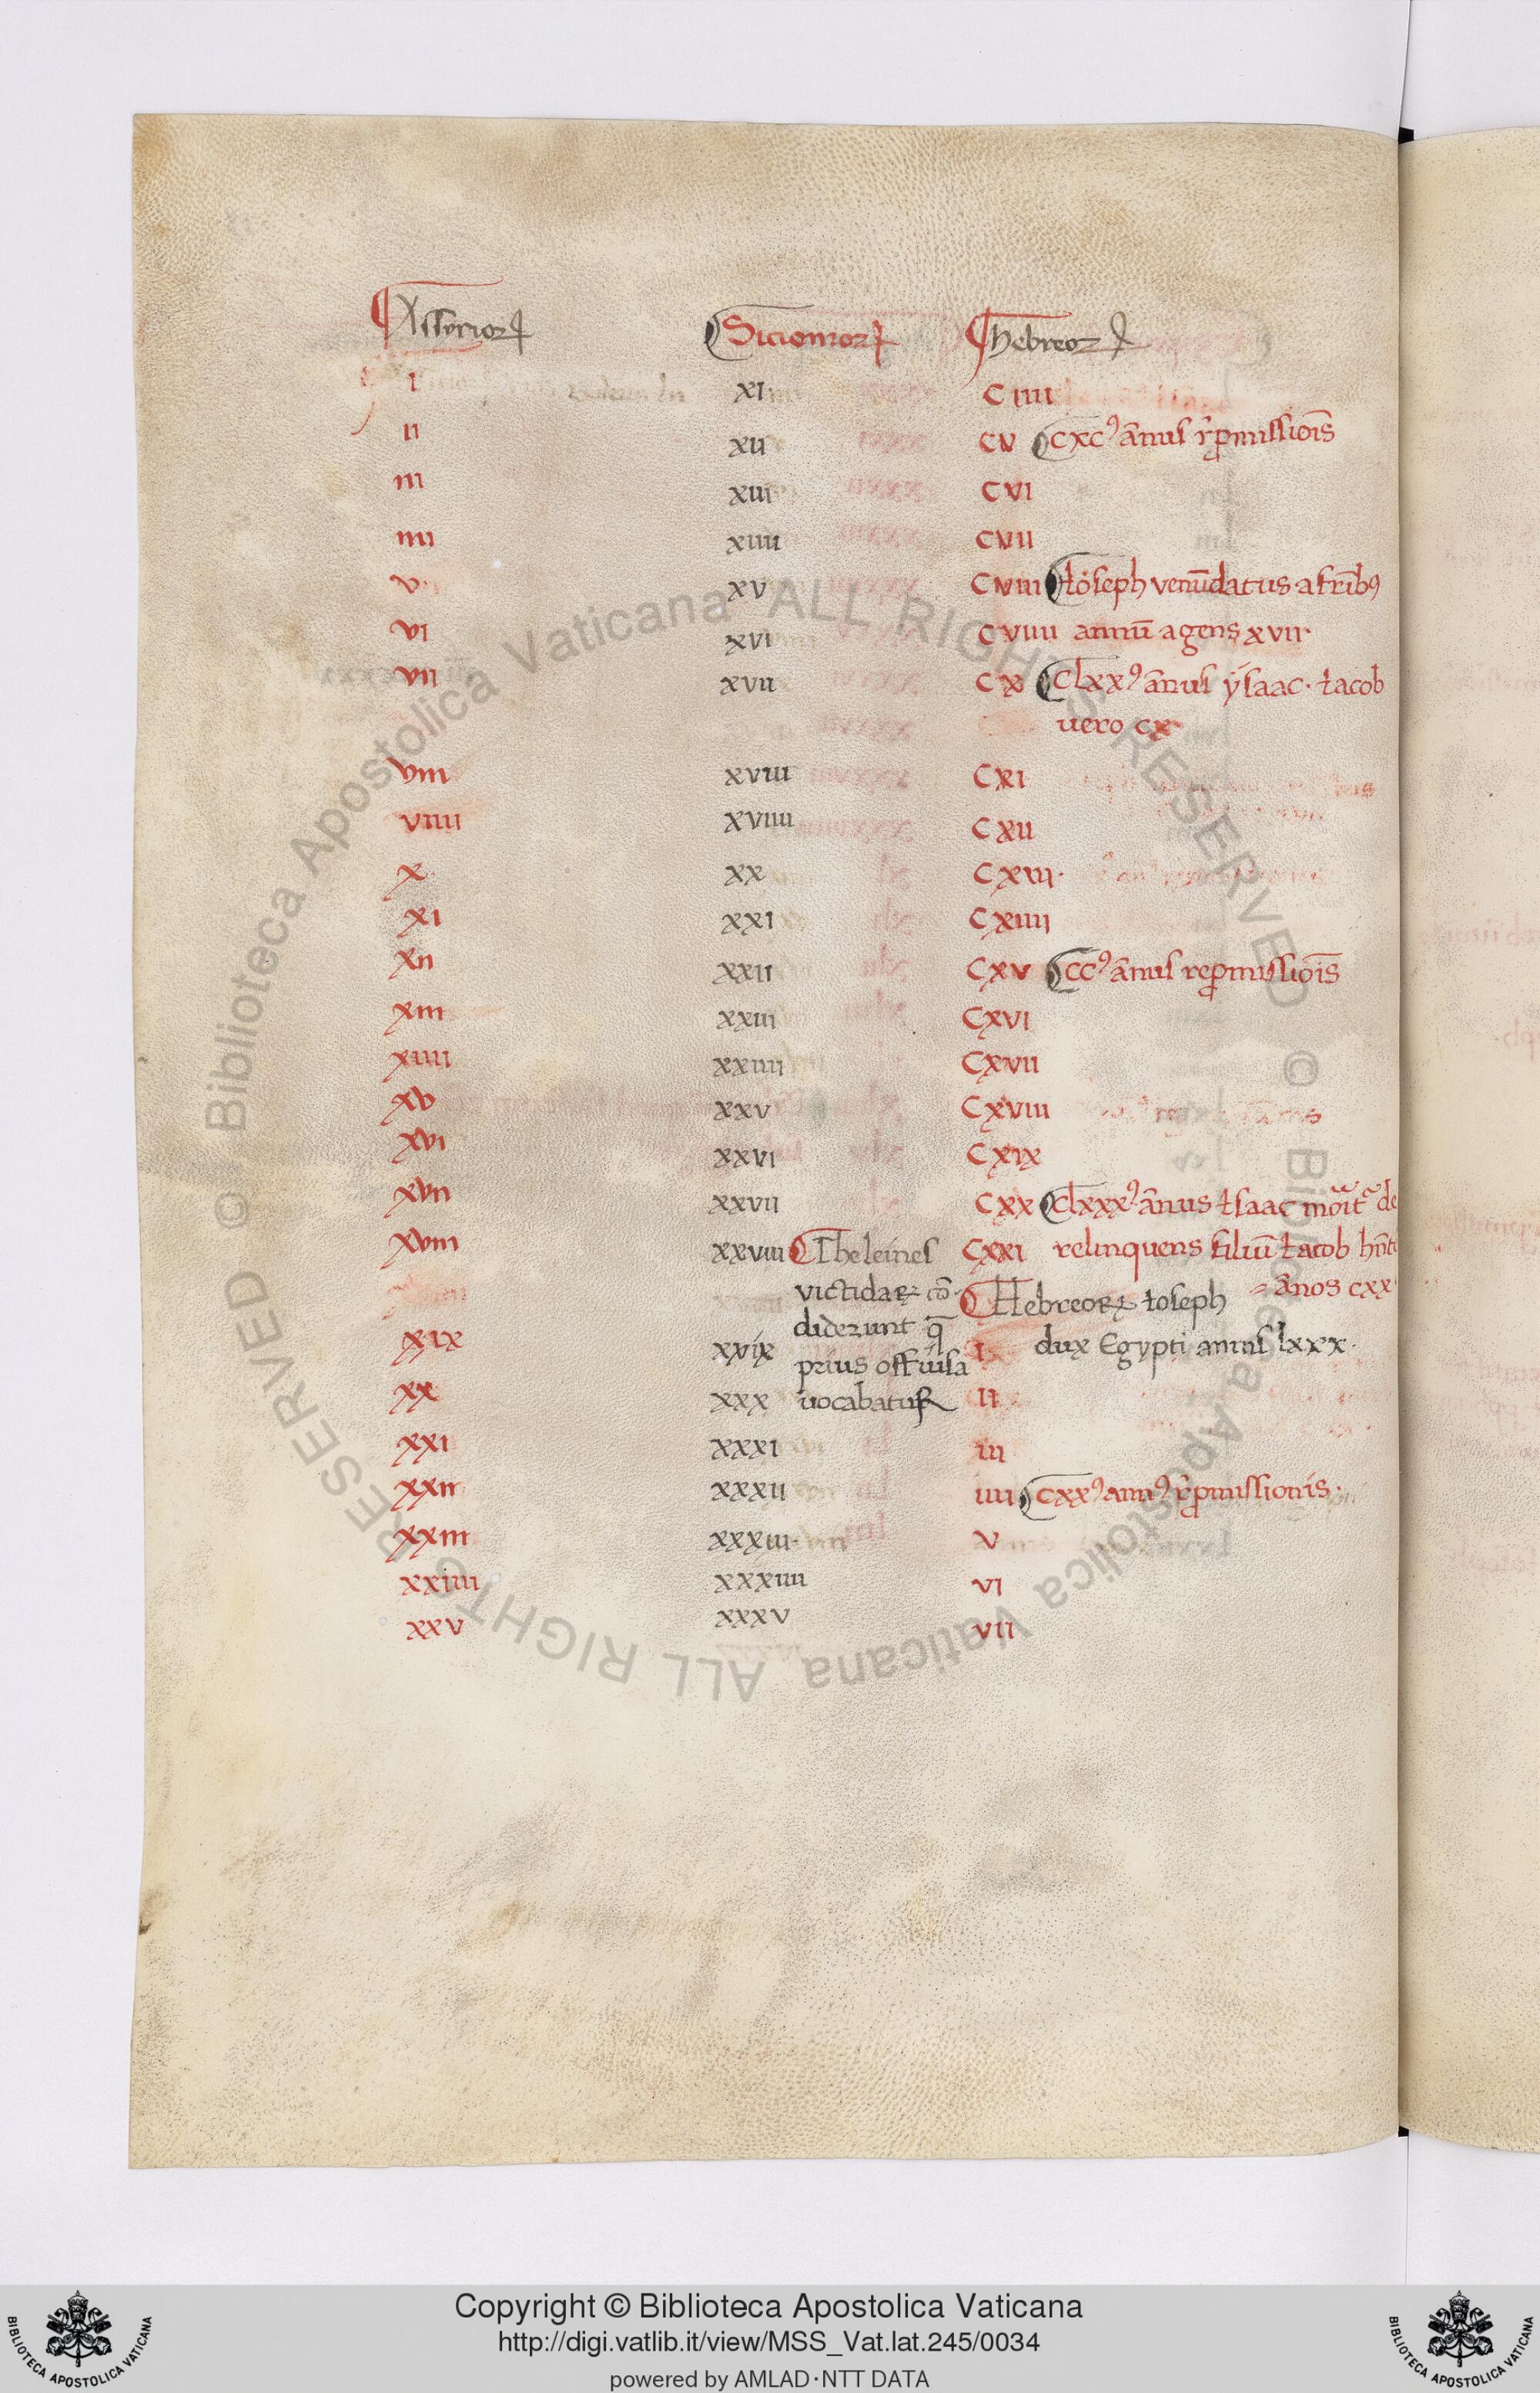 Assyrioꝝ Sicionioꝝ hebreoꝝ
I XI CIIII
II XII CV CXCꝰ ānus rꝓmissiōis
III XIII CVI
IIII XIIII CVII
V XV CVIII Ioseph venūdatus a frībꝰ
VI XVI CVIIII annū agens xvii
VII XVII CX Clxxꝰ ānus ysaac. Iacob
uero cx
VIII XVIII CXI
VIIII XVIIII CXII
X XX CXIII
XI XXI CXIIII
XII XXII CXV CCꝰ ānus reꝓmissiōis
XIII XXIII CXVI
XIIII XXIIII CXVII
XV XXV CXVIII
XVI XXVI CXIX
XVII XXVII CXX Clxxxꝰ ānus Isaac moīt de
XVIII XXVIII Theleines CXXI relinquens filiū Iacob hnt
victidaꝝ cō Hebreoꝝ Ioseph ānos cxx
diderunt q̄
XIX XXIX prius offiusa I dux Egypti annis lxxx.
XX XXX uocabatur II
XXI XXXI III
XXII XXXII IIII CXXꝰ annꝰ rꝓmissionis.
XXIII XXXIII V
XXIIII XXXIIII VI
XXV XXXV VII
© Biblioteca Apostolica Vaticana ALL RIGHTS RESERVED © Biblioteca Apostolica Vaticana ALL RIGHTS RESERVED
Copyright © Biblioteca Apostolica Vaticana
http://digi.vatlib.it/view/MSS_Vat.lat.245/0034
powered by AMLAD·NTT DATA
BIBLIOTECA APOSTOLICA VATICANA
BIBLIOTECA APOSTOLICA VATICANA